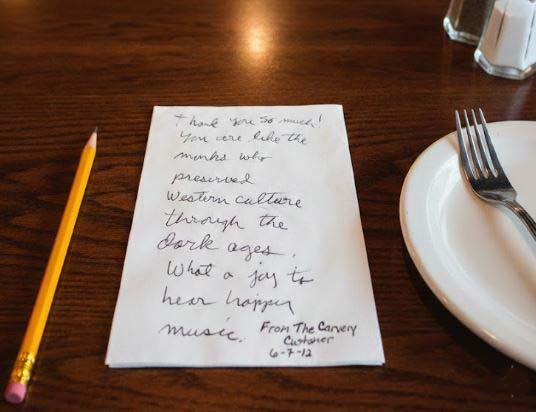 Thank you so much!
You are like the
monks who
preserved
Western culture
through the
dark ages.
What a joy to
hear happy
music.
From The Carvery
Customer
6-7-12